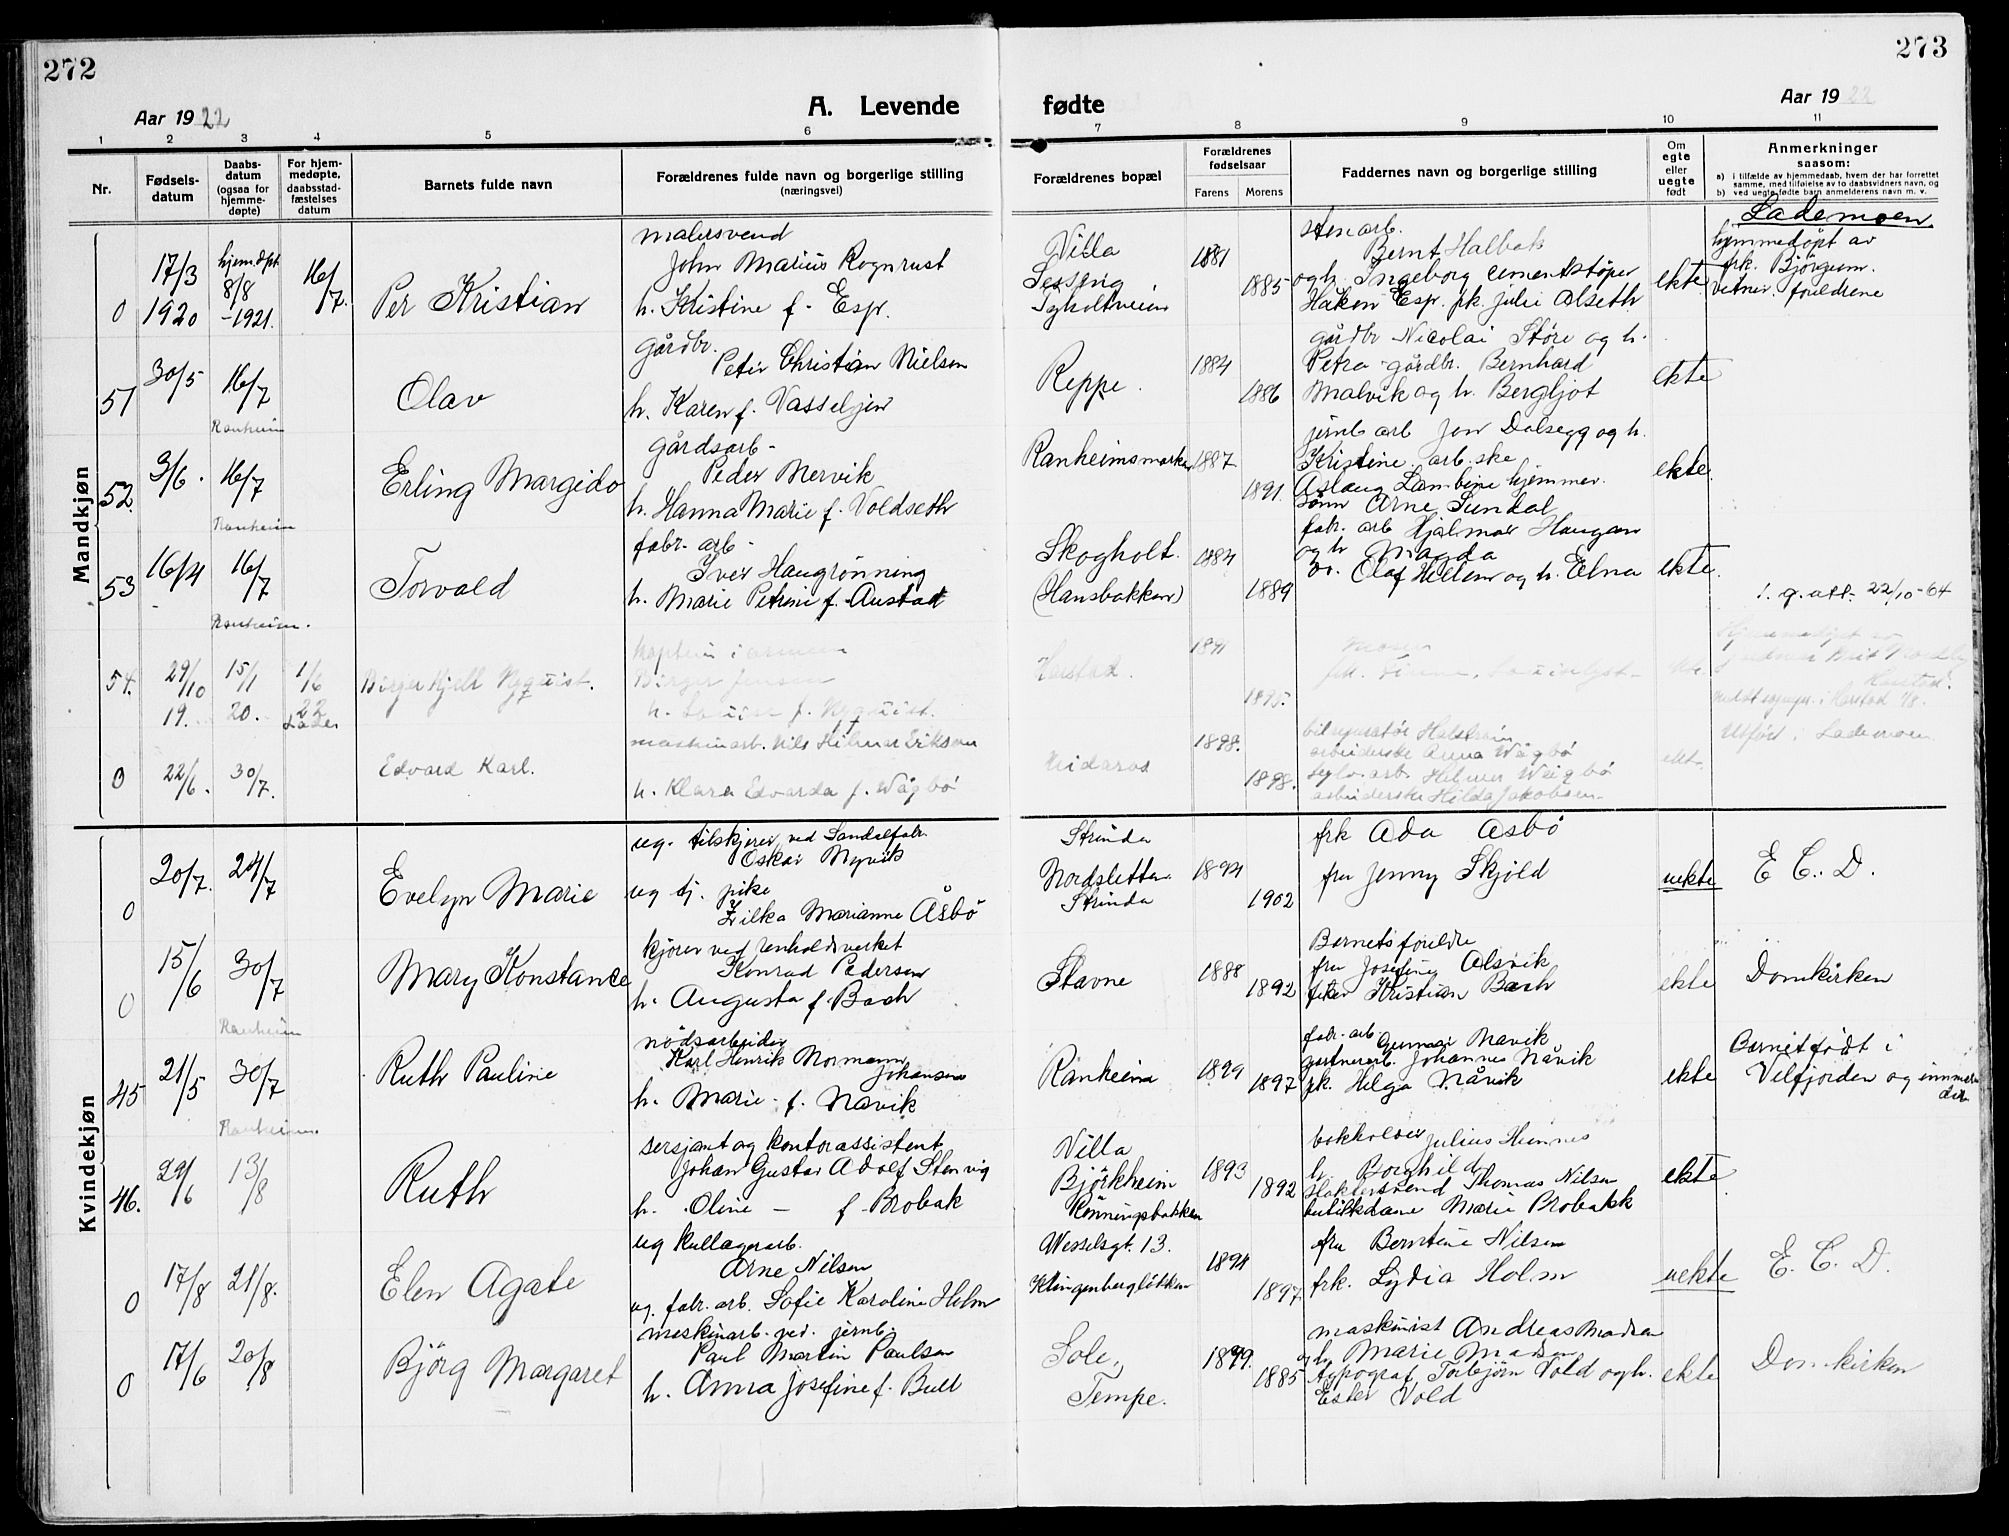 272
273
Aar 1922
A. Levende
fødte
Aar 1922
1 2 3 4 5 6 7 8 9 10 11
Nr.
Fødsels-
datum
Daabs-
datum
(ogsaa for
hjemme-
døpte)
For hjem-
medøpte,
daabsstad-
fæstelses
datum
Barnets fulde navn
Forældrenes fulde navn og borgerlige stilling
(næringsvei)
Forældrenes bopæl
Forældrenes
fødselsaar
Farens Morens
Faddernes navn og borgerlige stilling
Om
egte
eller
uegte
født
Anmerkninger
saasom:
a) i tilfælde av hjemmedaab, hvem der har forrettet
samme, med tilføielse av to daabsvidners navn, og
b) ved uegte fødte barn anmelderens navn m. v.
Mandkjøn
0
17/3
1920
hjem.døpt
8/8
-1921.
16/7.
Per Kristian
malersvend
John Marius Rognrust
h. Kristine f. Esp.
Villa
Sessing
Tyholtveien
1881
1885
stenarb.
Bernt Halbak
og h. Ingeborg cementstøper
Håkon Esp. frk. Julie Alseth
ekte
Lademoen
hjemmedøpt av
frk. Bjørgum.
Vitner: foreldrene
51
30/5
16/7
Olav
gårdbr.
Peter Christian Nielsen
h. Karen f. Vasseljen
Reppe.
1884
1886
gårdbr Nicolai Støre og h.
Petra gårdbr. Bernhard
Malvik og h. Bergljot
ekte
Ranheim
52.
3/6.
16/7
Erling Margido
gårdsarb-
Peder Mervik
h. Hanna Marie f. Voldseth
Ranheimsmarken
1887
1891.
jernb arb Jon Dalsegg og h.
Kristine. arb.ske
Aslaug Lambine hjemmev.
sønn Arne Sundal
ekte.
Ranheim
53
16/4
16/7
Torvald
fabr. arb-
Iver Haugrønning
h. Marie Petrine f. Austad
Skogholt.
(Hansbakken)
1884
1889
fabr. arb Hjalmar Haugan
og h Magda
Olaf Hellem og h. Elna
ekte.
1. g. att. 22/10-64
Ranheim.
54.
29/10
19.
15/11
20.
1/6
22
Birger Kjell Nyquist.
kaptein i armeen
Birger Jensen
h. Louise f. Nyquist.
Harstad.
1891
1895.
Harstad.
0
22/6.
30/7.
Edvard Karl.
maskinarb. Nils Hilmar Eriksen
h. Klara Edvarda f. Wågbø
Nidaros
1898.
1898.
arbeiderske Anna Wågbø
arb. Hilmar Wågbø
arbeiderske Hilda Jakobsen
ekte.
Utført i Lademoen
Kvindekjøn
0
20/7.
24/7
Evelyn Marie
ug. tilskjærer ved Sandalfabr.
Oskar Myrvik
ug tj. pike
Zilka Marianne Åsbø
Strinda
Nordsletten
Strinda
1894
1902
frk Ada Asbø
fru Jenny Skjöld
uekte
E. C. D.
0
15/6
30/7
Mary Konstance
kjører ved renholdsverket
Konrad Pedersen
h. Augusta f. Bach
Stavne
1888
1892
Barnets foreldre
fru Josefine Alsvik
fisker Kristian Bach
ekte
Domkirken
Ranheim
45
21/5
30/7
Ruth Pauline
nödsarbeider
Karl Henrik Normann
Johansen
h. Marie f. Nåvik
Ranheim
1899
1897
fabr. arb Gunnar Nåvik
gartnerarb. Johannes Nåvik
frk. Helga Nåvik
ekte
Barnet født i
Velfjorden og innmeldt
der
Ranheim.
46.
29/6
13/8
Ruth
sersjant og kontorassistent
Johan Gustav Adolf Stenvig
h. Oline - f. Brobak
Villa
Björkheim
Rönningsbakken
1893
1892
bokholder Julius Hemnes
h. Borghild
Thomas Nilsen
butikkdame Marie Brobakk
ekte
0
17/8
21/8.
Elen Agate
ug kullagerarb.
Arne Nilsen
ug. fabr. arb. Sofie Karoline Holm
Wesselsgt. 13.
Klingenbergløkken
1894
1897
fru Berntine Nilsen
frk. Lydia Holm
uekte
E. C. D.
0
17/6
20/8
Björg Margaret
maskinarb. ved. jernb.
Paul Martin Paulsen
h. Anna Josefine f. Bull
Sole,
Tempe.
1879.
1885
maskinist Andreas Madsen
og h. Marie Madsen
typograf Torbjørn Vold og h.
Ester Vold
ekte
Domkirken